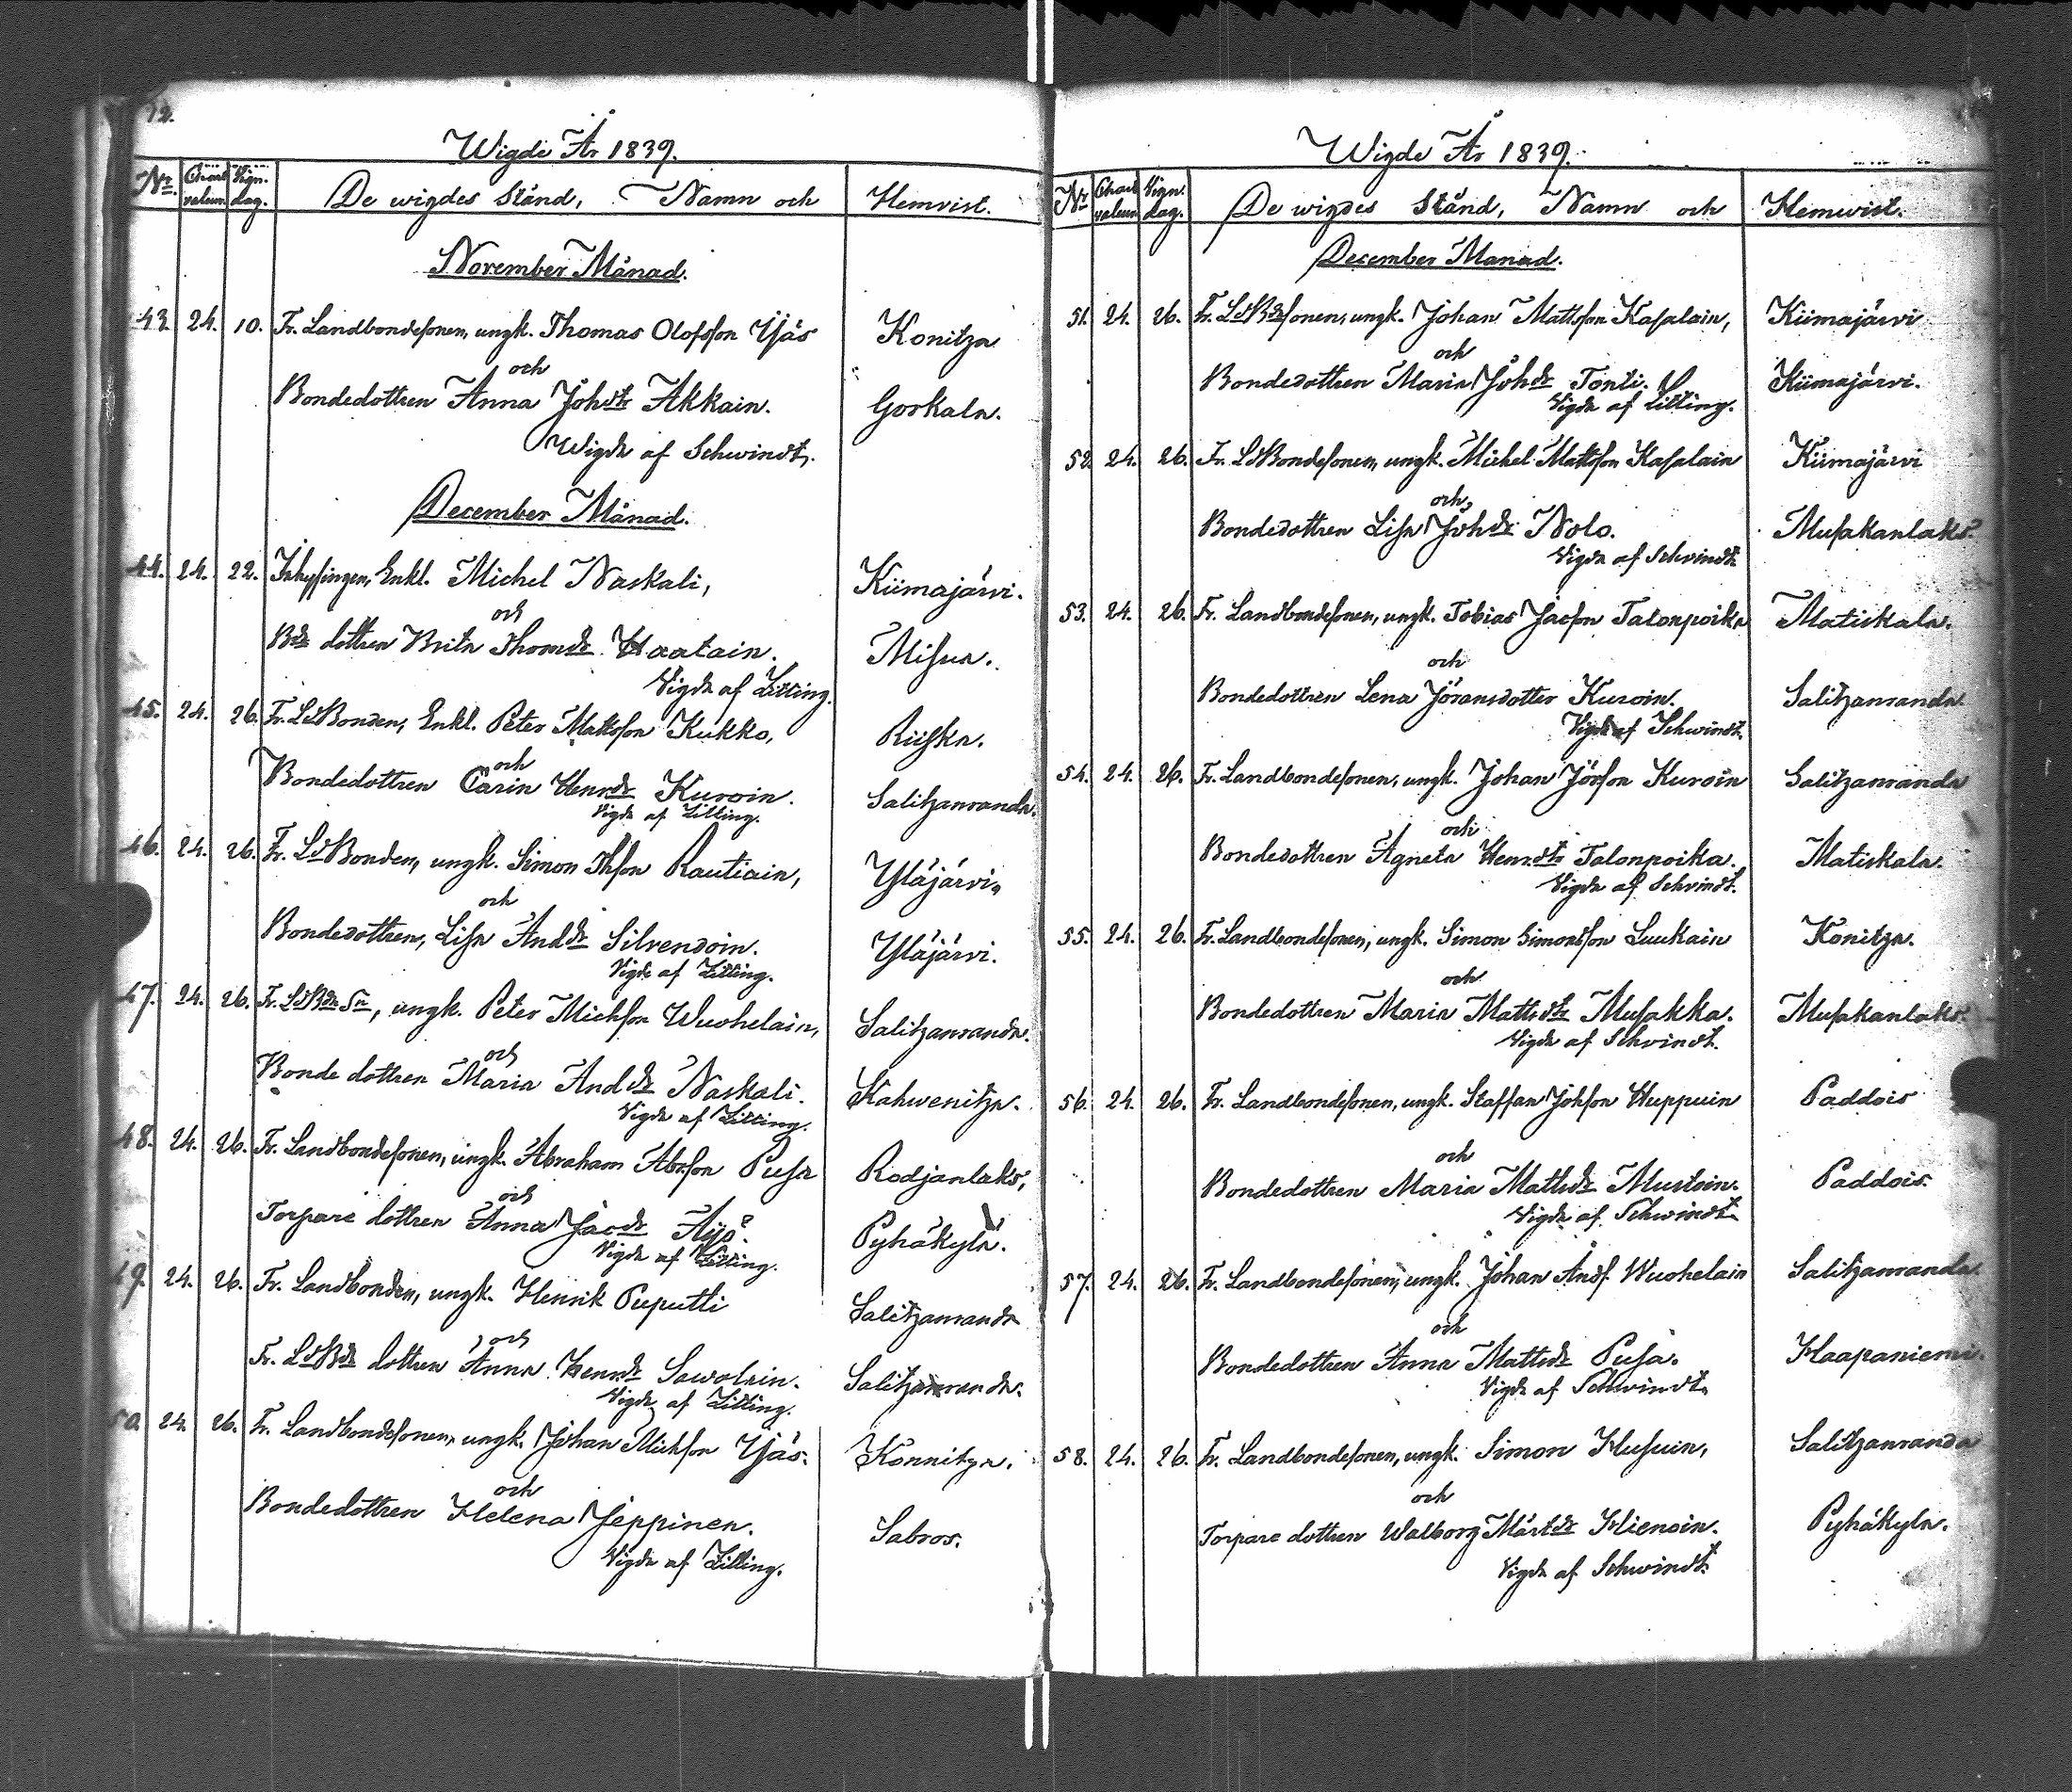 72.
Wigde År 1839.
Nr. Charta valeur. Vign. dag. De wigdes Stånd, Namn och Hemvist.
November Månad.
43. 24. 10. Fr. Landbondesonen, ungk. Thomas Olofsson Yjäs Konitza
och
Bondedottren Anna Johdtr Akkain. Goskala.
Wigde af Schwindt.
December Månad.
44. 24. 22. Inhysingen, Enkl. Michel Naskali, Kiimajärvi.
och
Bde dottren Brita Thomdr Haatain. Misua.
Vigde af Litling.
45. 24. 26. Fr. LdBonden, Enkl. Peter Mattsson Kukko, Riiska.
och
Bondedottren Carin Henrdr Kuroin. Salitzanranda.
Vigde af Litling.
46. 24. 26. Fr. LdBonden, ungk. Simon Thsson Rautiain, Yläjärvi,
och
Bondedottren, Lisa Anddr Silvendoin. Yläjärvi.
Vigde af Litling.
47. 24. 26. Fr. LdBde Sn, ungk. Peter Michsson Wuohelain, Salitzanranda.
och
Bonde dottren Maria Anddr Naskali. Kahwenitza.
Vigde af Litling.
48. 24. 26. Fr. Landbondesonen, ungk. Abraham Abrsson Pusa Rodjanlaks,
och
Torpare dottren Anna Jacdr Äijö? Pyhäkylä.
Vigde af Litling.
49. 24. 26. Fr. Landbonden, ungk. Henrik Puputti Salitzanranda
och
Fr. LdBde dottren Anna Henrdr Sawolain. Salitzanranda.
Vigde af Litling.
50. 24. 26. Fr. Landbondesonen, ungk. Johan Michsson Yjäs. Konnitza.
och
Bondedottren Helena Jeppinen. Sabros.
Vigde af Litling.
Wigde År 1839.
Nr Charta valeur Vign. dag. De wigdes Stånd, Namn och Hemwist.
December Manad.
51. 24. 26. Fr. LdBdesonen, ungk. Johan Mattsson Kasalain, Kiimajärvi
och
Bondedottren Maria Johdr Tonti. Kiimajärvi.
Vigde af Litling.
52. 24. 26. Fr. LdBondesonen, ungk. Michel Mattsson Kasalain Kiimajärvi
och
Bondedottren Lisa Johdr Nolo. Musakanlaks.
Vigde af Schvindt
53. 24. 26. Fr. Landbondesonen, ungk. Tobias Jacsson Talonpoika Matiskala.
och
Bondedottren Lena Jöransdotter Kuroin. Salitzanranda.
Vigde af Schwindt.
54. 24. 26. Fr. Landbondesonen, ungk. Johan Jörsson Kuroin Salitzanranda
och
Bondedottren Agneta Henrdtr Talonpoika. Matiskala.
Vigde af Schvindt.
55. 24. 26. Fr. Landbondesonen, ungk. Simon Simonsson Luukain Konitza.
och
Bondedottren Maria Mattsdtr Musakka. Musakanlaks.
Vigde af Schvindt.
56. 24. 26. Fr. Landbondesonen, ungk. Staffan Johsson Huppuin Paddois
och
Bondedottren Maria Mattsdr Mustoin. Paddois.
Vigde af Schwindt.
57. 24. 26. Fr. Landbondesonen, ungk. Johan Andsf. Wuohelain Salitzanranda.
och
Bondedottren Anna Mattsdr Pusa. Haapaniemi.
Vigde af Schwindt.
58. 24. 26. Fr. Landbondesonen, ungk. Simon Husuin, Salitzanranda
och
Torpare dottren Walborg Mårtdr Hienoin. Pyhäkylä.
Vigde af Schwindt.